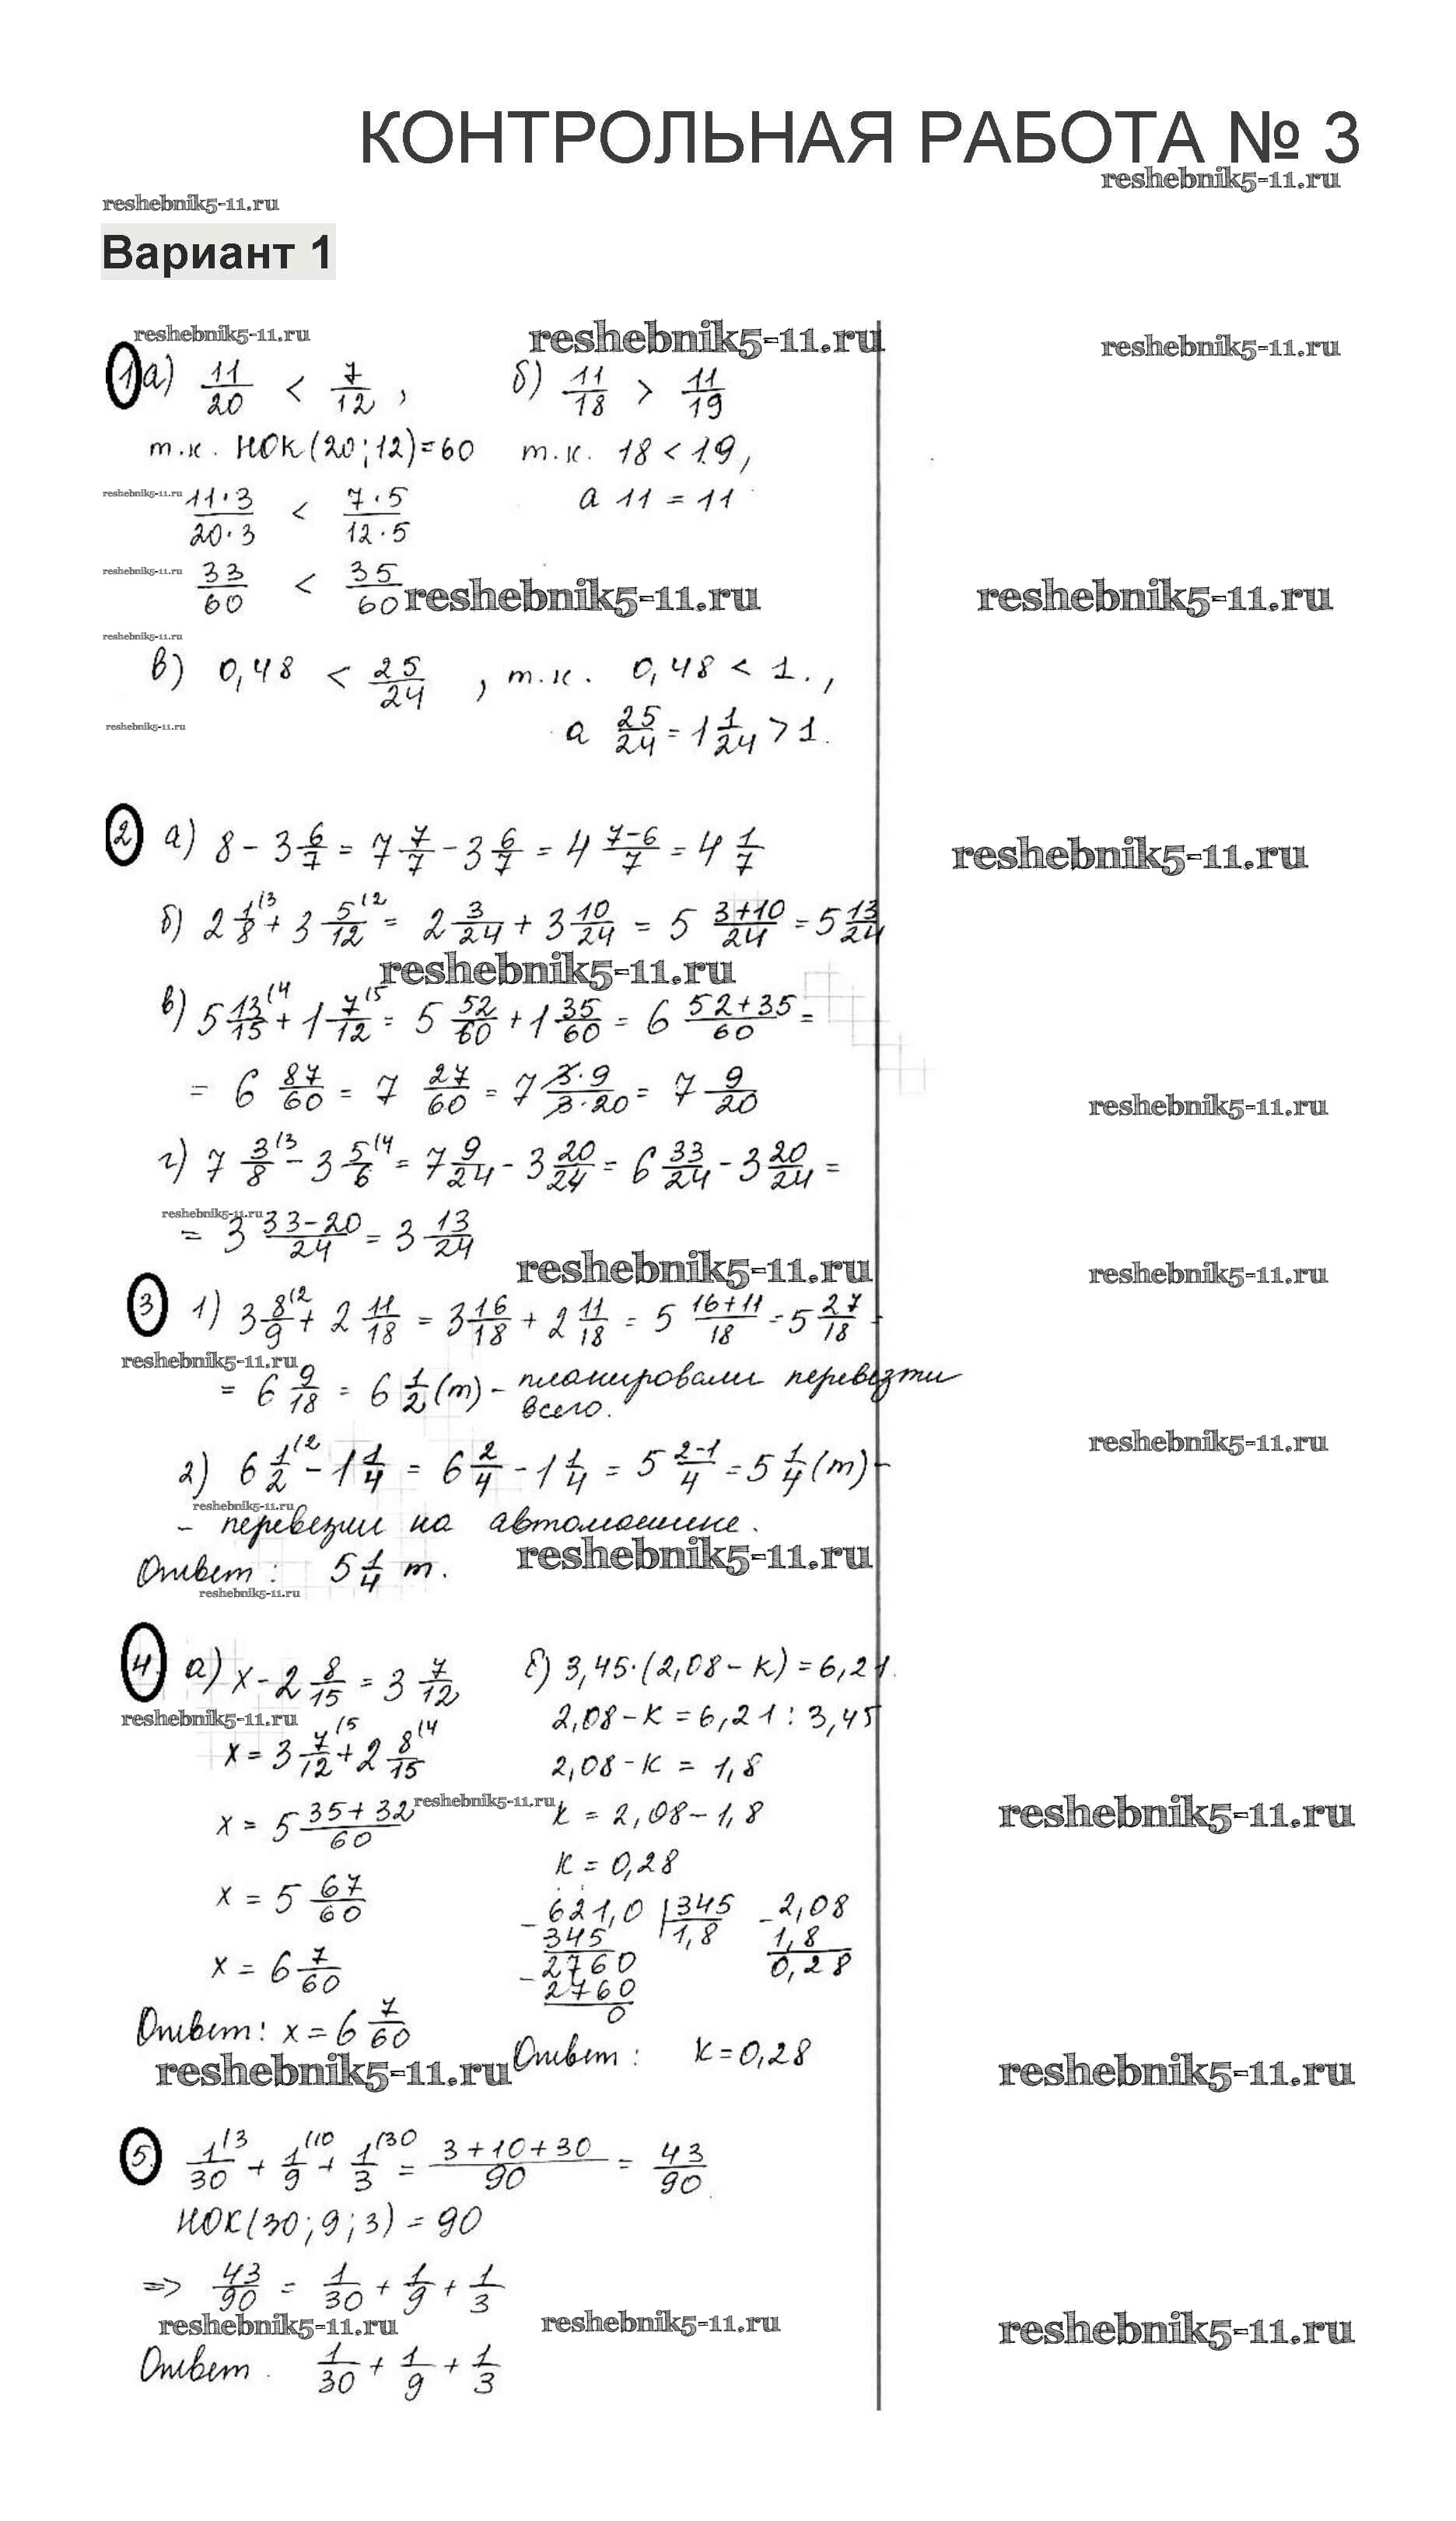 КОНТРОЛЬНАЯ РАБОТА № 3
reshebnik5-11.ru
reshebnik5-11.ru
Вариант 1
reshebnik5-11.ru reshebnik5-11.ru reshebnik5-11.ru
1 а) 11/20 < 7/12, б) 11/18 > 11/19
т.к. НОК(20;12)=60 т.к. 18 < 19,
reshebnik5-11.ru 11·3/20·3 < 7·5/12·5 а 11 = 11
reshebnik5-11.ru 33/60 < 35/60 reshebnik5-11.ru reshebnik5-11.ru
reshebnik5-11.ru
в) 0,48 < 25/24, т.к. 0,48 < 1.,
reshebnik5-11.ru а 25/24 = 1 1/24 > 1.
2 а) 8 - 3 6/7 = 7 7/7 - 3 6/7 = 4 7-6/7 = 4 1/7 reshebnik5-11.ru
б) 2 1/8 (3 + 3 5/12 (2 = 2 3/24 + 3 10/24 = 5 3+10/24 = 5 13/24
reshebnik5-11.ru
в) 5 13/15 (4 + 1 7/12 (5 = 5 52/60 + 1 35/60 = 6 52+35/60 =
= 6 87/60 = 7 27/60 = 7 3·9/3·20 = 7 9/20 reshebnik5-11.ru
г) 7 3/8 (3 - 3 5/6 (4 = 7 9/24 - 3 20/24 = 6 33/24 - 3 20/24 =
reshebnik5-11.ru
= 3 33-20/24 = 3 13/24
reshebnik5-11.ru reshebnik5-11.ru
3 1) 3 8/9 (2 + 2 11/18 = 3 16/18 + 2 11/18 = 5 16+11/18 = 5 27/18 =
reshebnik5-11.ru
= 6 9/18 = 6 1/2 (т) - планировали перевезти
всего.
reshebnik5-11.ru
2) 6 1/2 (2 - 1 1/4 = 6 2/4 - 1 1/4 = 5 2-1/4 = 5 1/4 (т) -
reshebnik5-11.ru
- перевезли на автомашине.
reshebnik5-11.ru
Ответ: 5 1/4 т.
reshebnik5-11.ru
4 а) x - 2 8/15 = 3 7/12 б) 3,45·(2,08 - k) = 6,21.
reshebnik5-11.ru 2,08 - k = 6,21 : 3,45
x = 3 7/12 (5 + 2 8/15 (4 2,08 - k = 1,8
reshebnik5-11.ru reshebnik5-11.ru
x = 5 35+32/60 k = 2,08 - 1,8
k = 0,28
x = 5 67/60 - 621,0 | 345 - 2,08
345 1,8 1,8
x = 6 7/60 - 2760 0,28
2760
0
Ответ: x = 6 7/60
Ответ: k = 0,28
reshebnik5-11.ru reshebnik5-11.ru
5. 1/30 (3 + 1/9 (10 + 1/3 (30 = 3+10+30/90 = 43/90
НОК(30;9;3) = 90
=> 43/90 = 1/30 + 1/9 + 1/3
reshebnik5-11.ru reshebnik5-11.ru reshebnik5-11.ru
Ответ. 1/30 + 1/9 + 1/3